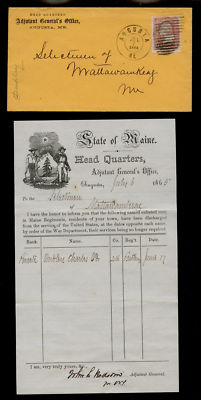 HEAD QUARTERS
Adjutant General's Office,
AUGUSTA, ME.
AUGUSTA
ME.
Selectmen of
Mattawamkeag
Me
State of Maine.
Head Quarters,
Adjutant General's Office,
Augusta, July 6 1865
To the Selectmen
of Mattawamkeag
I have the honor to inform you that the following named enlisted men
in Maine Regiments, residents of your town, have been discharged
from the service of the United States, at the dates opposite each
by order of the War Department, their services being no longer required
RANK.
NAME.
Co.
Reg't
Date.
Charles
June 17
I am, very truly yours, &c.,
John L. Hodsdon
Adjutant General.